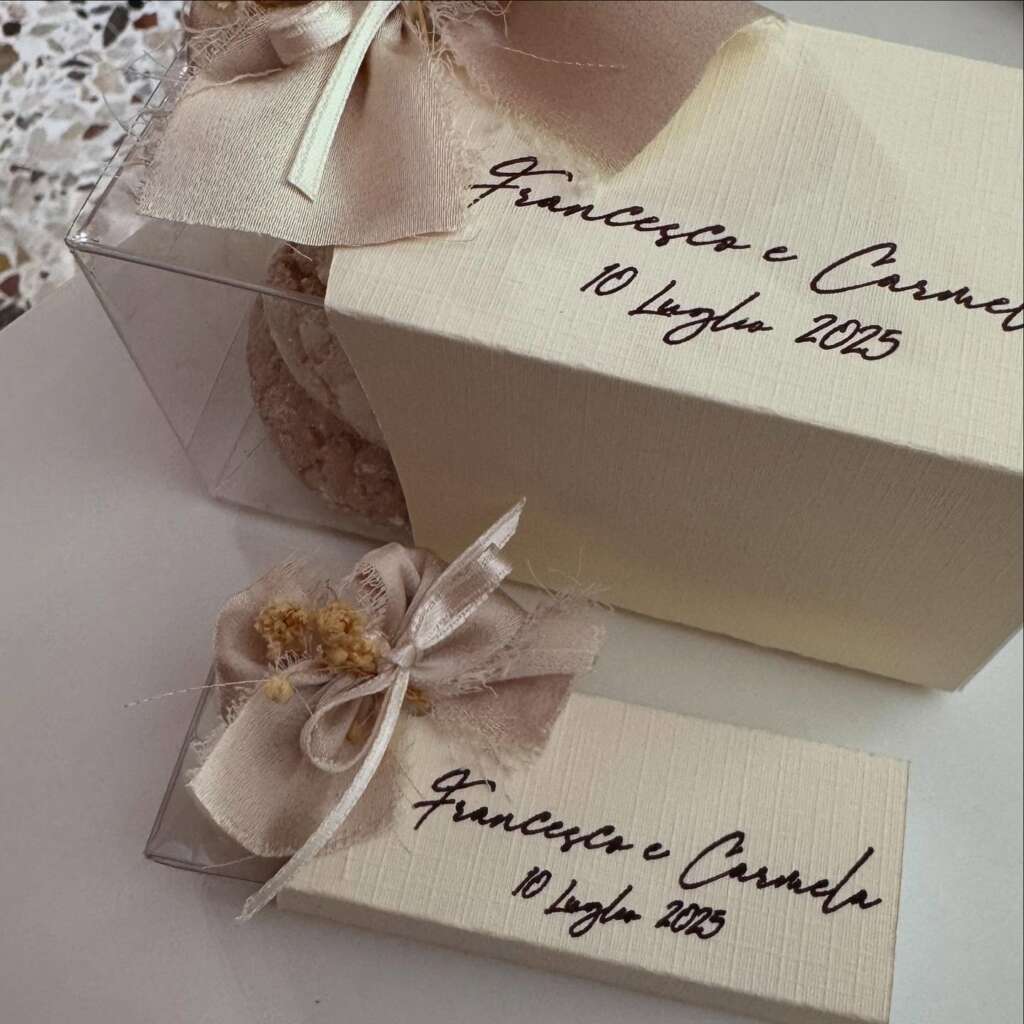 Francesco e Carmel
10 Luglio 2025
Francesco e Carmela
10 Luglio 2025